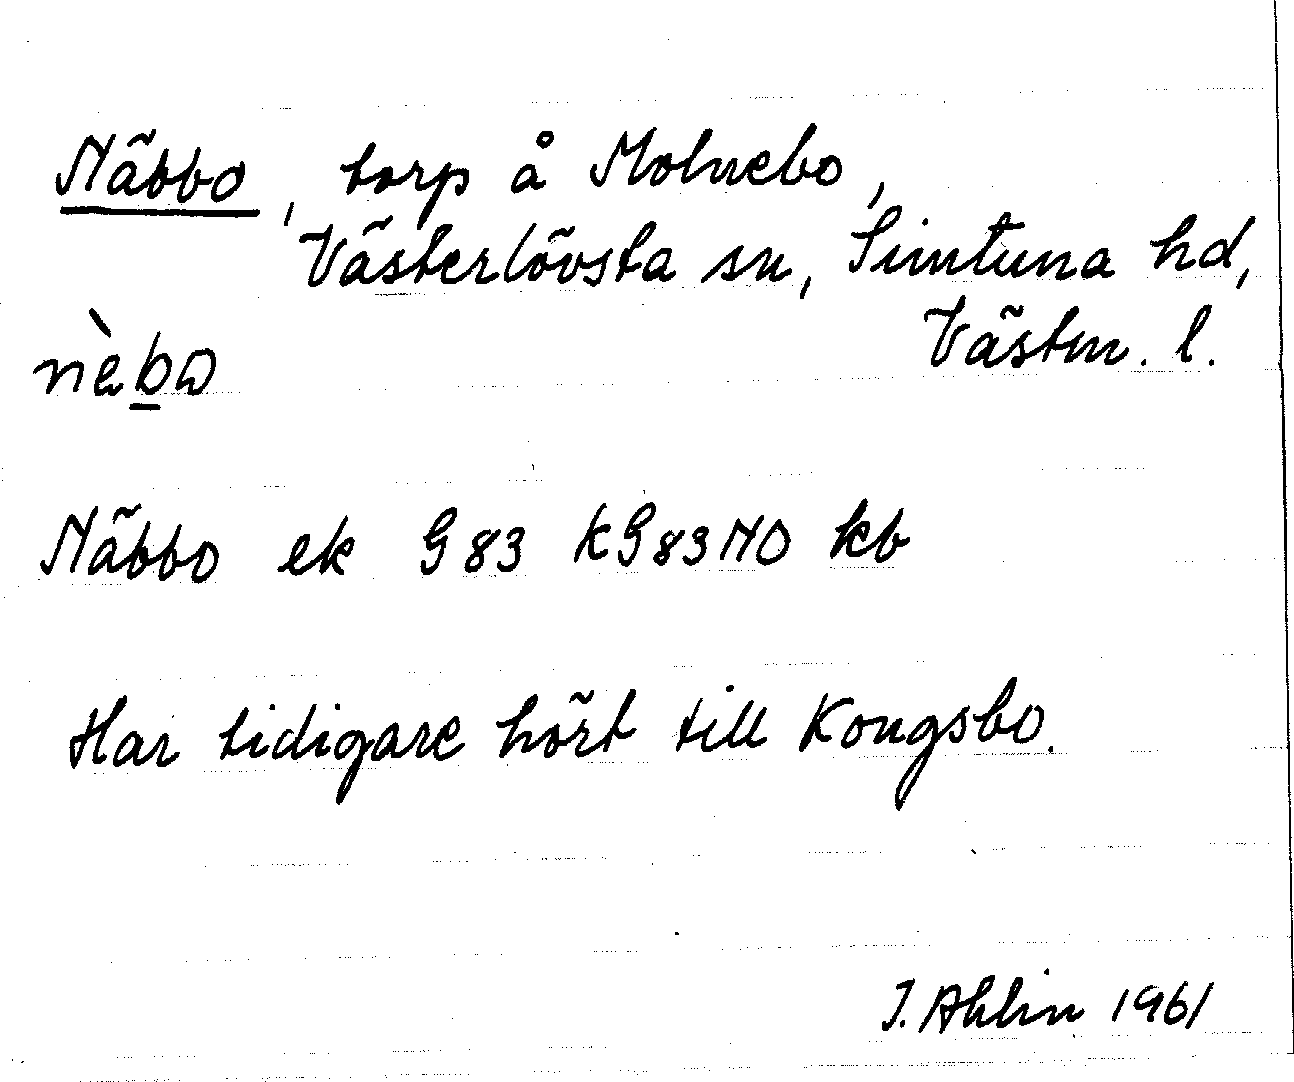 Näbbo, torp å Molnebo,
Västerlövsta sn, Simtuna hd,
Västm. l.
nèbo
Näbbo ek G 83 KG83NO kb
Har tidigare hört till Kongsbo.
I. Ahlin 1961